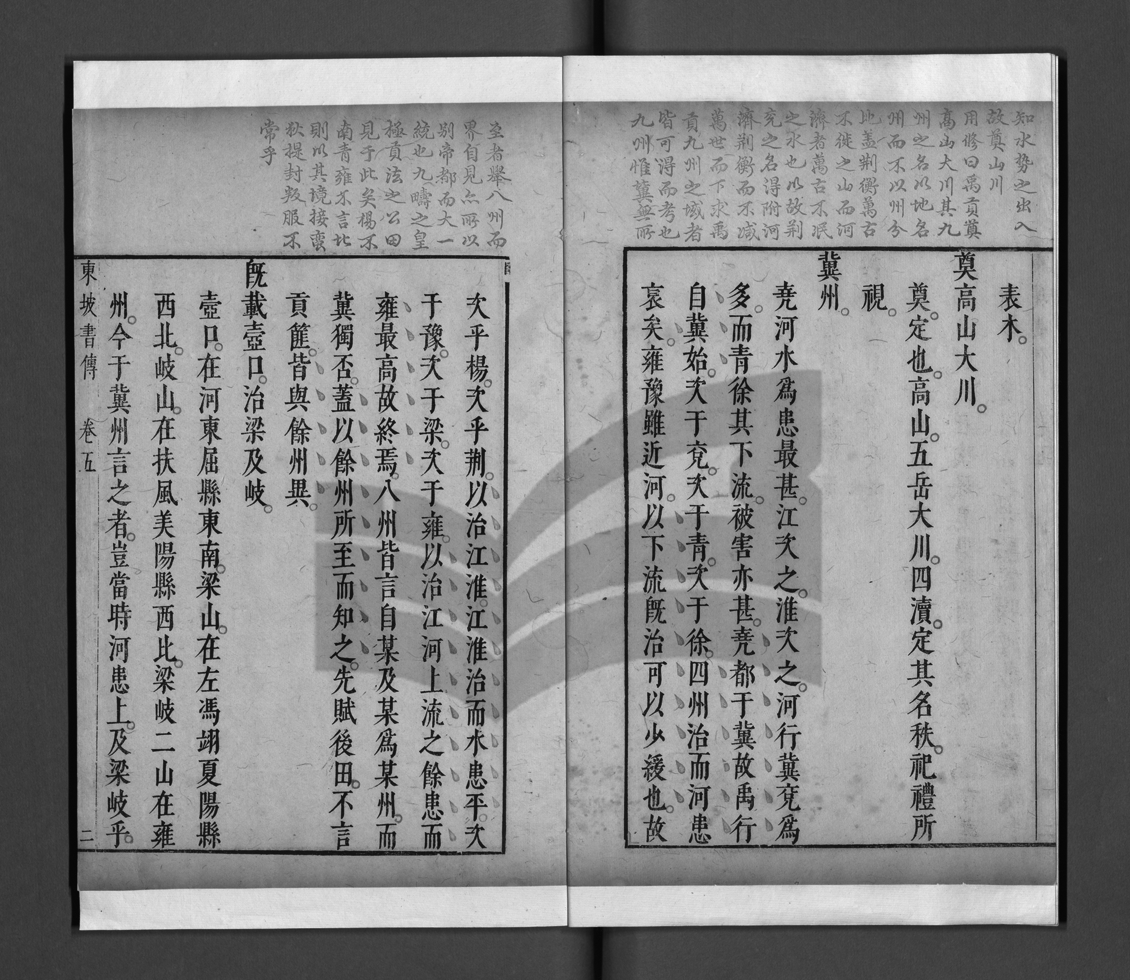 知水勢之出入
故奠山川
用修曰禹貢奠
高山大川其九
州之名以地名
州而不以州分
地盖荆衡萬古
不徙之山而河
濟者萬古不泯
之水也以故荆
兖之名得附河
濟荆衡而不滅
萬世而下求禹
貢九州之域者
皆可得而考也
九州惟冀無所
表木。
奠高山大川。
奠。定也。高山。五岳大川。四瀆。定其名秩。祀禮所
視。
冀州。
堯河水爲患最甚。江次之。淮次之。河行冀兖爲
多。而青徐其下流。被害亦甚。堯都于冀。故禹行
自冀始。次于兖。次于青。次于徐。四州治而河患
衰矣。雍豫雖近河。以下流旣治。可以少緩也。故
至者舉八州而
界自見亦所以
别帝都而大一
統也九疇之皇
極貢法之公田
見于此矣楊不
南青雍不言北
則以其境接蠻
狄提封叛服不
常乎
次乎楊。次乎荆。以治江淮。江淮治而水患平。次
于豫。次于梁。次于雍。以治江河上流之餘患。而
雍最高。故終焉。八州皆言自某及某爲某州。而
冀獨否。蓋以餘州所至而知之。先賦後田。不言
貢篚。皆與餘州異。
旣載壺口。治梁及岐。
壺口。在河東屈縣東南。梁山。在左馮翊夏陽縣
西北。岐山。在扶風美陽縣西比。梁岐二山。在雍
州。今于冀州言之者。豈當時河患上。及梁岐乎。
東坡書傳 卷五 二